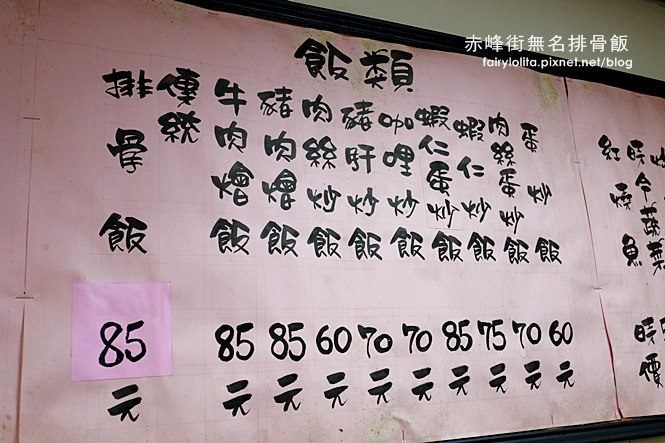 赤峰街無名排骨飯
fairylolita.pixnet.net/blog
飯類
傳統排骨飯 85元
牛肉燴飯 85元
豬肉燴飯 85元
肉絲炒飯 60元
豬肝炒飯 70元
咖哩炒飯 70元
蝦仁蛋炒飯 85元
蝦仁炒飯 75元
肉絲蛋炒飯 70元
蛋炒飯 60元
紅燒魚 時價
時令蔬菜